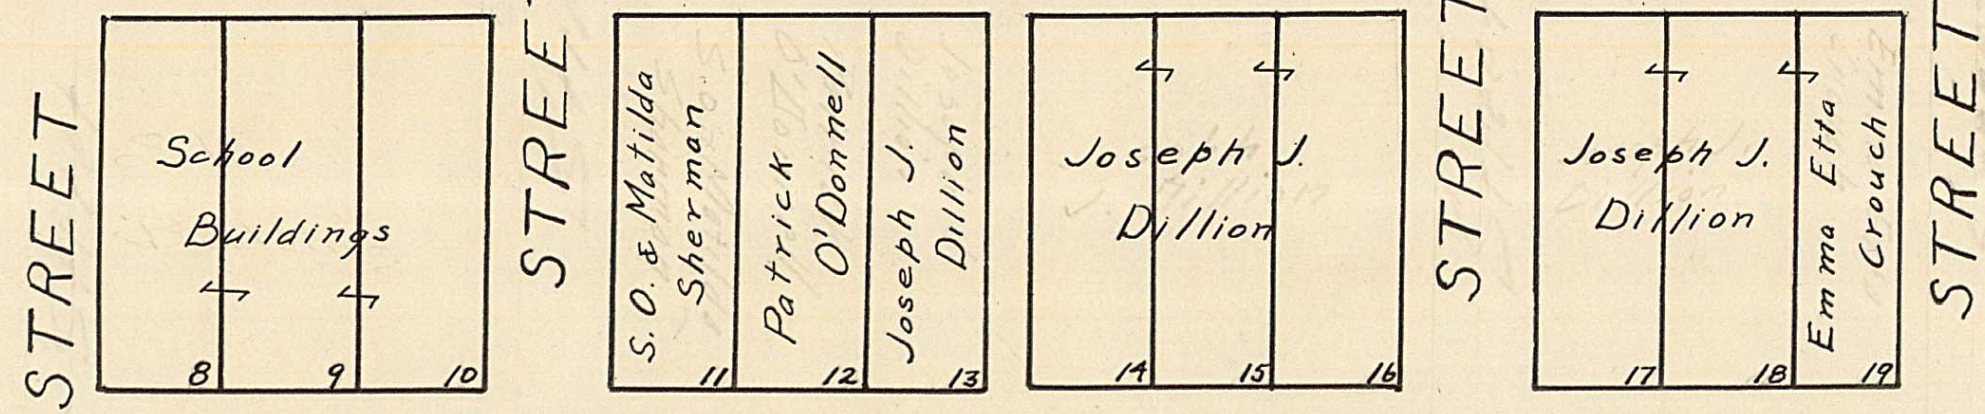 STREET
School
Buildings
8
9
10
STREET
S. O. & Matilda
Sherman
11
Patrick
O'Donnell
12
Joseph J.
Dillion
13
Joseph J.
Dillion
14
15
16
STREET
Joseph J.
Dillion
17
18
Emma Etta
Crouch
19
STREET